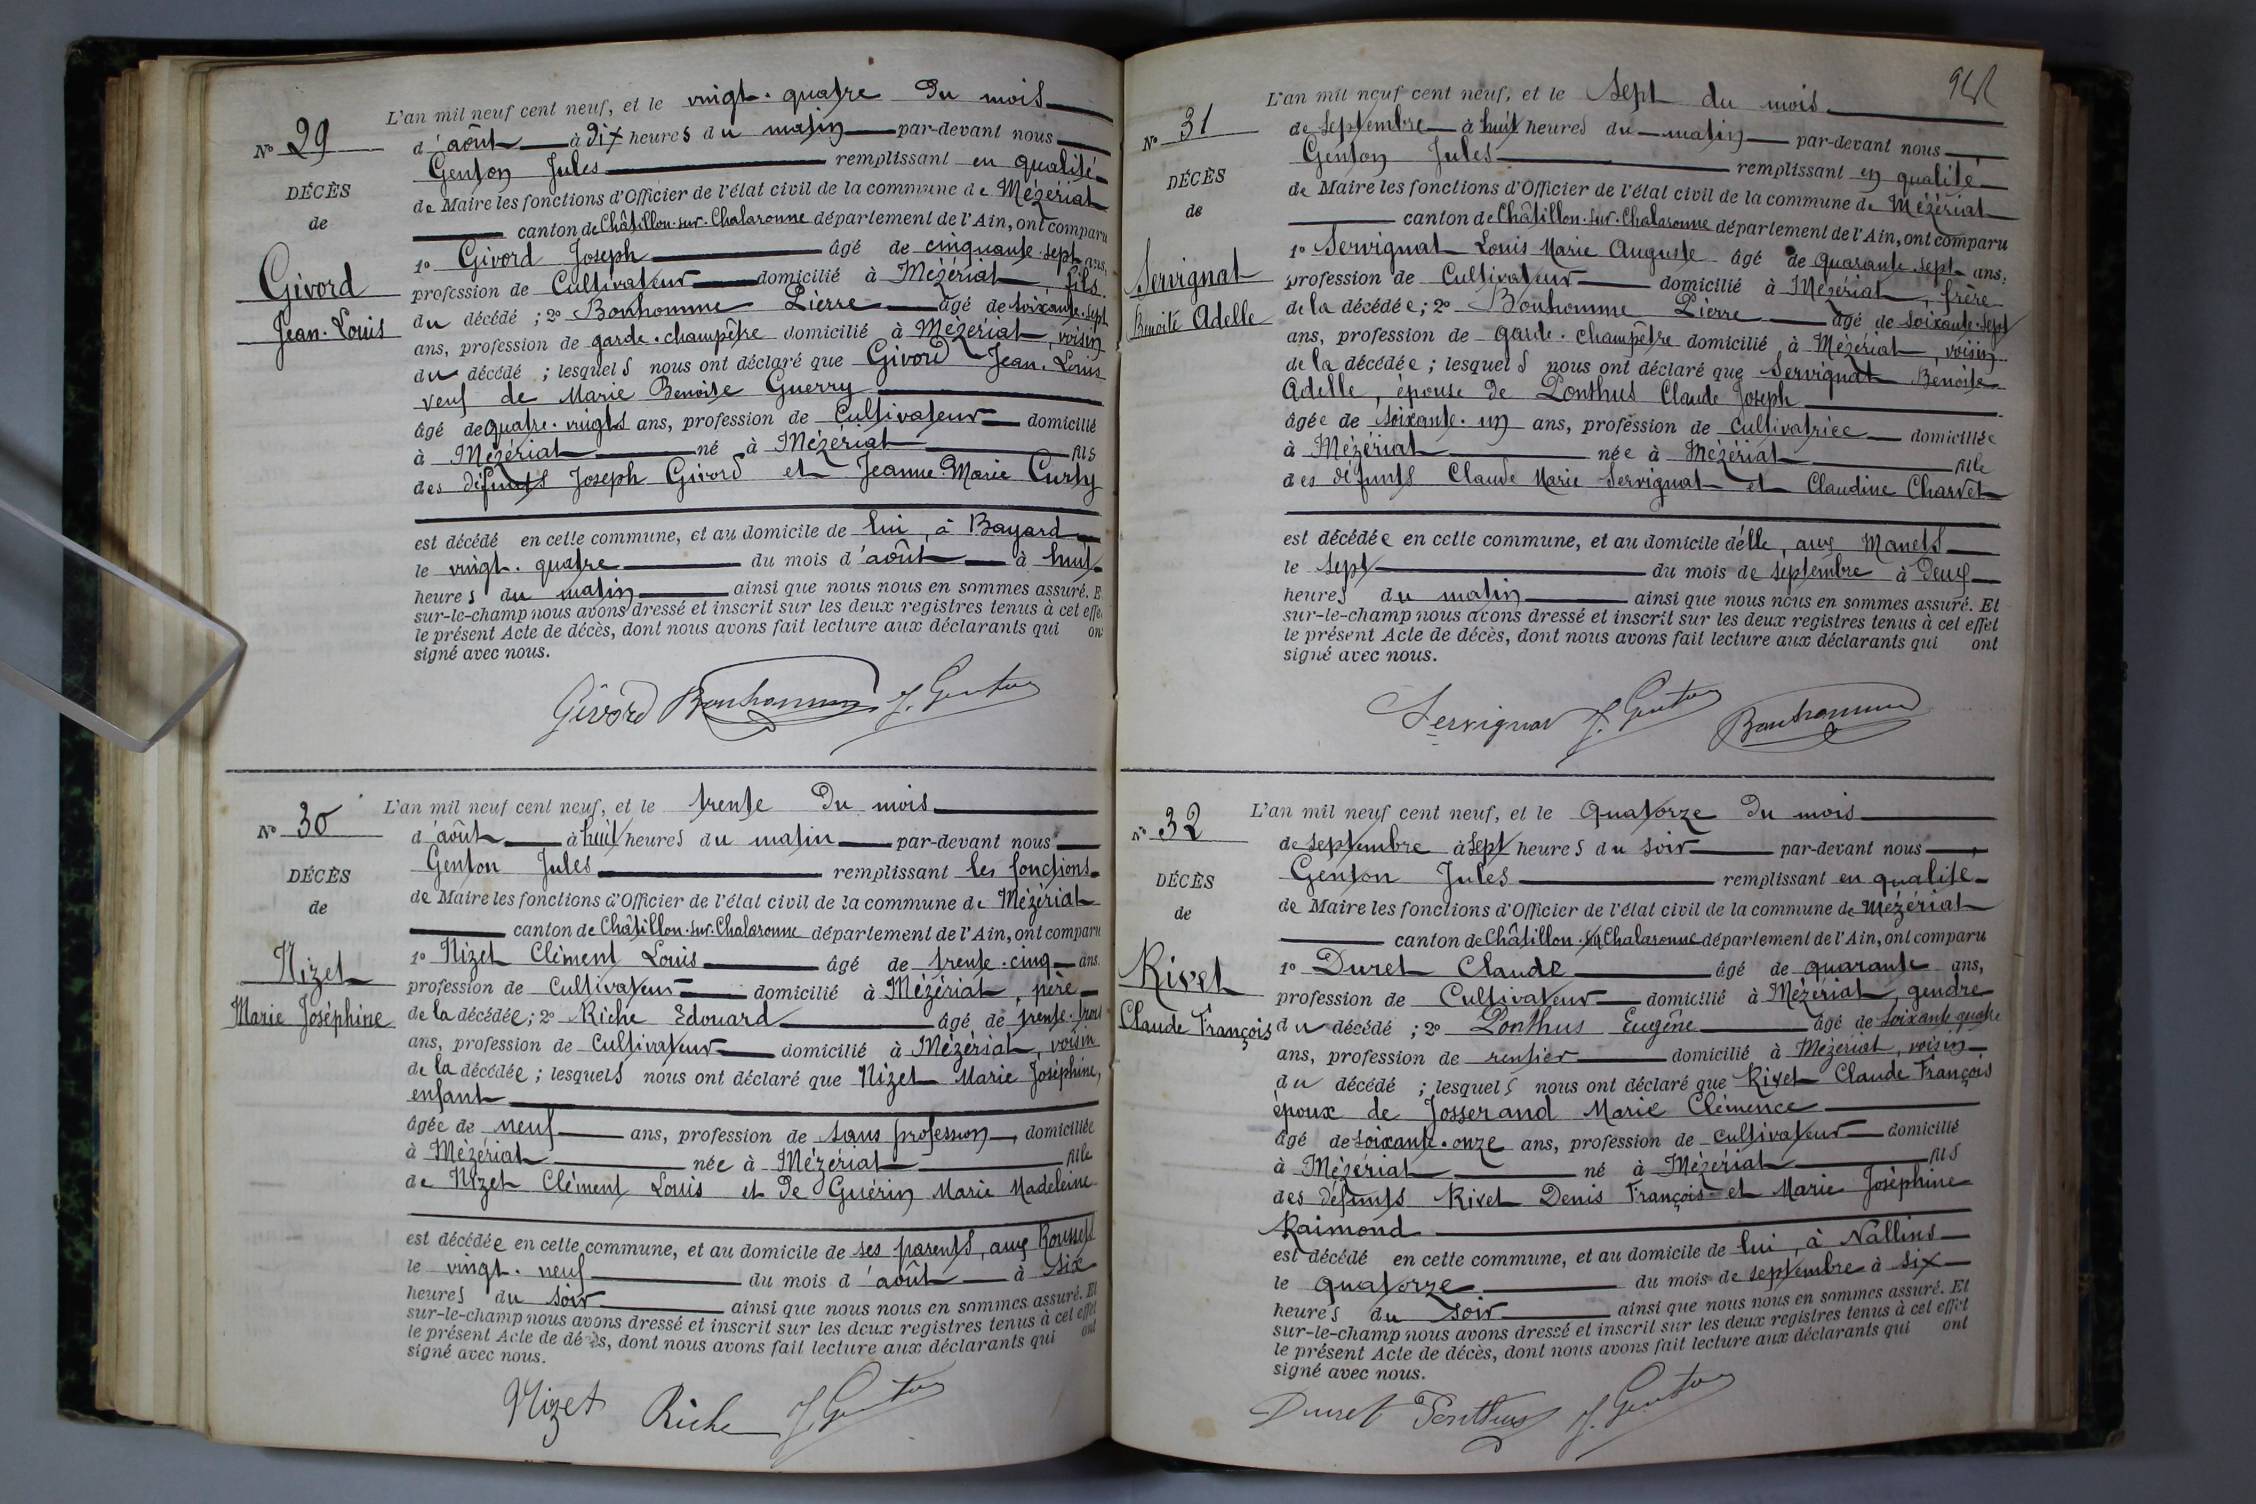 L'an mil neuf cent neuf, et le vingt-quatre du mois
N° 29
d'août à dix heures du matin par-devant nous
Genton Jules remplissant en qualité
DÉCÈS
de Maire les fonctions d'Officier de l'état civil de la commune de Mézériat
de
canton de Châtillon-sur-Chalaronne département de l'Ain, ont comparu
1° Givord Joseph âgé de cinquante-sept ans,
Givord
profession de Cultivateur domicilié à Mézériat, fils
Jean-Louis
du décédé ; 2° Bonhomme Pierre âgé de soixante-sept
ans, profession de garde-champêtre domicilié à Mézériat, voisin
du décédé ; lesquels nous ont déclaré que Givord Jean-Louis
veuf de Marie Benoite Guerry
âgé de quatre-vingts ans, profession de Cultivateur domicilié
à Mézériat né à Mézériat fils
des défunts Joseph Givord et Jeanne-Marie Curty
est décédé en cette commune, et au domicile de lui, à Bayard
le vingt-quatre du mois d'août à huit
heures du matin ainsi que nous nous en sommes assuré. E
sur-le-champ nous avons dressé et inscrit sur les deux registres tenus à cet effe
le présent Acte de décès, dont nous avons fait lecture aux déclarants qui on
signé avec nous.
Givord Bonhomme J. Genton
L'an mil neuf cent neuf, et le trente du mois
N° 30
d'août à huit heures du matin par-devant nous
Genton Jules remplissant les fonctions
DÉCÈS
de Maire les fonctions d'Officier de l'état civil de la commune de Mézériat
de
canton de Châtillon-sur-Chalaronne département de l'Ain, ont comparu
1° Nizet Clément Louis âgé de trente-cinq ans.
Nizet
profession de Cultivateur domicilié à Mézériat, père
Marie Joséphine
de la décédée ; 2° Riche Edouard âgé de trente-trois
ans, profession de Cultivateur domicilié à Mézériat, voisin
de la décédée ; lesquels nous ont déclaré que Nizet Marie Joséphine,
enfant
âgée de neuf ans, profession de sans profession, domiciliée
à Mézériat née à Mézériat fille
de Nizet Clément Louis et de Guérin Marie Madeleine
est décédée en cette commune, et au domicile de ses parents, aux Roussets
le vingt-neuf du mois d'août à six
heures du soir ainsi que nous nous en sommes assuré. Et
sur-le-champ nous avons dressé et inscrit sur les deux registres tenus à cet effet
le présent Acte de décès, dont nous avons fait lecture aux déclarants qui ont
signé avec nous.
Nizet Riche J. Genton
L'an mil neuf cent neuf, et le sept du mois
N° 31
de septembre à huit heures du matin par-devant nous
Genton Jules remplissant en qualité
DÉCÈS
de Maire les fonctions d'Officier de l'état civil de la commune de Mézériat
de
canton de Châtillon-sur-Chalaronne département de l'Ain, ont comparu
1° Servignat Louis Marie Auguste âgé de quarante-sept ans,
Servignat
profession de Cultivateur domicilié à Mézériat, frère
Benoite Adelle
de la décédée ; 2° Bonhomme Pierre âgé de soixante-sept
ans, profession de garde-champêtre domicilié à Mézériat, voisin
de la décédée ; lesquels nous ont déclaré que Servignat Benoite
Adelle, épouse de Ponthus Claude Joseph
âgée de soixante-un ans, profession de cultivatrice domiciliée
à Mézériat née à Mézériat fille
des défunts Claude Marie Servignat et Claudine Charvet
est décédée en cette commune, et au domicile d'elle, aux Manets
le sept du mois de septembre à deux
heures du matin ainsi que nous nous en sommes assuré. Et
sur-le-champ nous avons dressé et inscrit sur les deux registres tenus à cet effet
le présent Acte de décès, dont nous avons fait lecture aux déclarants qui ont
signé avec nous.
Servignat J. Genton Bonhomme
L'an mil neuf cent neuf, et le quatorze du mois
N° 32
de septembre à sept heures du soir par-devant nous
Genton Jules remplissant en qualité
DÉCÈS
de Maire les fonctions d'Officier de l'état civil de la commune de Mézériat
de
canton de Châtillon-sur-Chalaronne département de l'Ain, ont comparu
1° Duret Claude âgé de quarante ans,
Rivet
profession de Cultivateur domicilié à Mézériat, gendre
Claude François
du décédé ; 2° Ponthus Eugène âgé de soixante-quatre
ans, profession de rentier domicilié à Mézériat, voisin
du décédé ; lesquels nous ont déclaré que Rivet Claude François
époux de Josserand Marie Clémence
âgé de soixante-onze ans, profession de cultivateur domicilié
à Mézériat né à Mézériat fils
des défunts Rivet Denis François et Marie Joséphine
Raimond
est décédé en cette commune, et au domicile de lui, à Nallins
le quatorze du mois de septembre à six
heures du soir ainsi que nous nous en sommes assuré. Et
sur-le-champ nous avons dressé et inscrit sur les deux registres tenus à cet effet
le présent Acte de décès, dont nous avons fait lecture aux déclarants qui ont
signé avec nous.
Duret Ponthus J. Genton